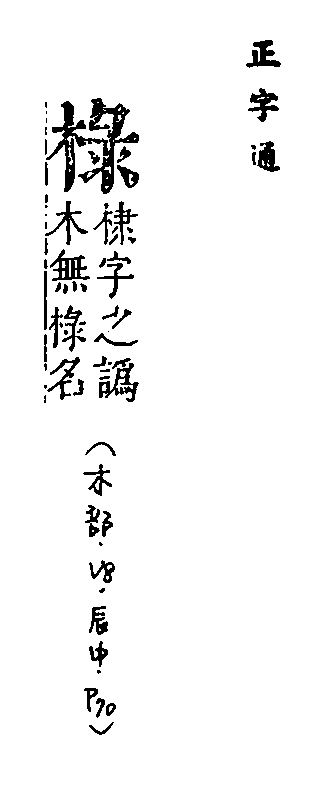 正字通
椂 棣字之譌
木無椂名
(木部．V8．辰中．P70)